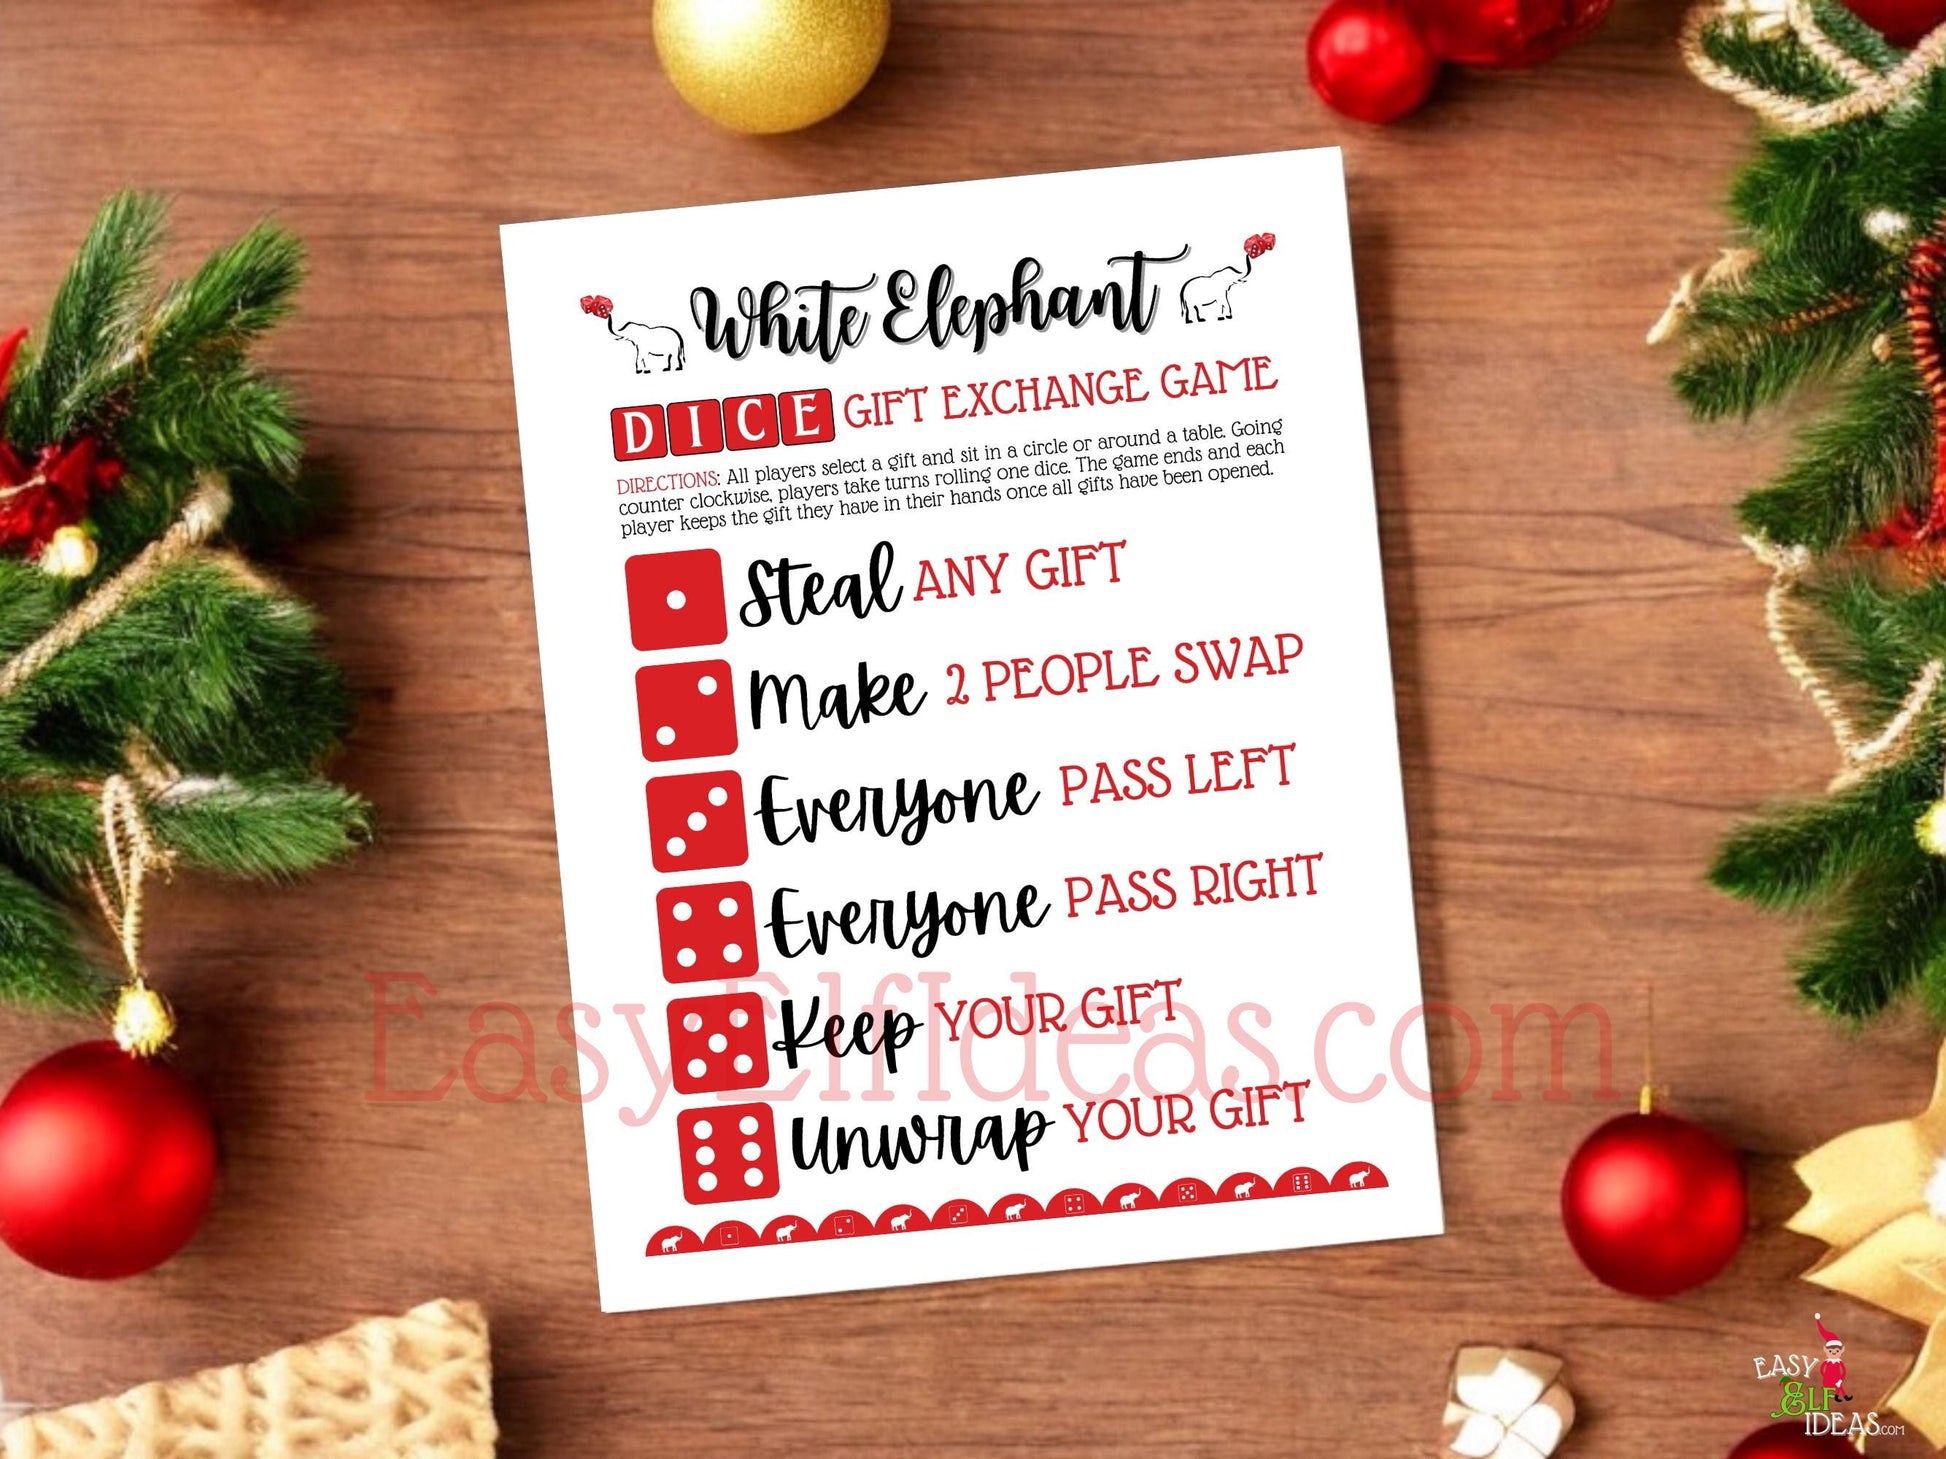 White Elephant
DICE GIFT EXCHANGE GAME
DIRECTIONS: All players select a gift and sit in a circle or around a table. Going
counter clockwise, players take turns rolling one dice. The game ends and each
player keeps the gift they have in their hands once all gifts have been opened.
Steal ANY GIFT
Make 2 PEOPLE SWAP
Everyone PASS LEFT
Everyone PASS RIGHT
Keep YOUR GIFT
EasyElfIdeas.com
Unwrap YOUR GIFT
EASY
ELF
IDEAS.COM